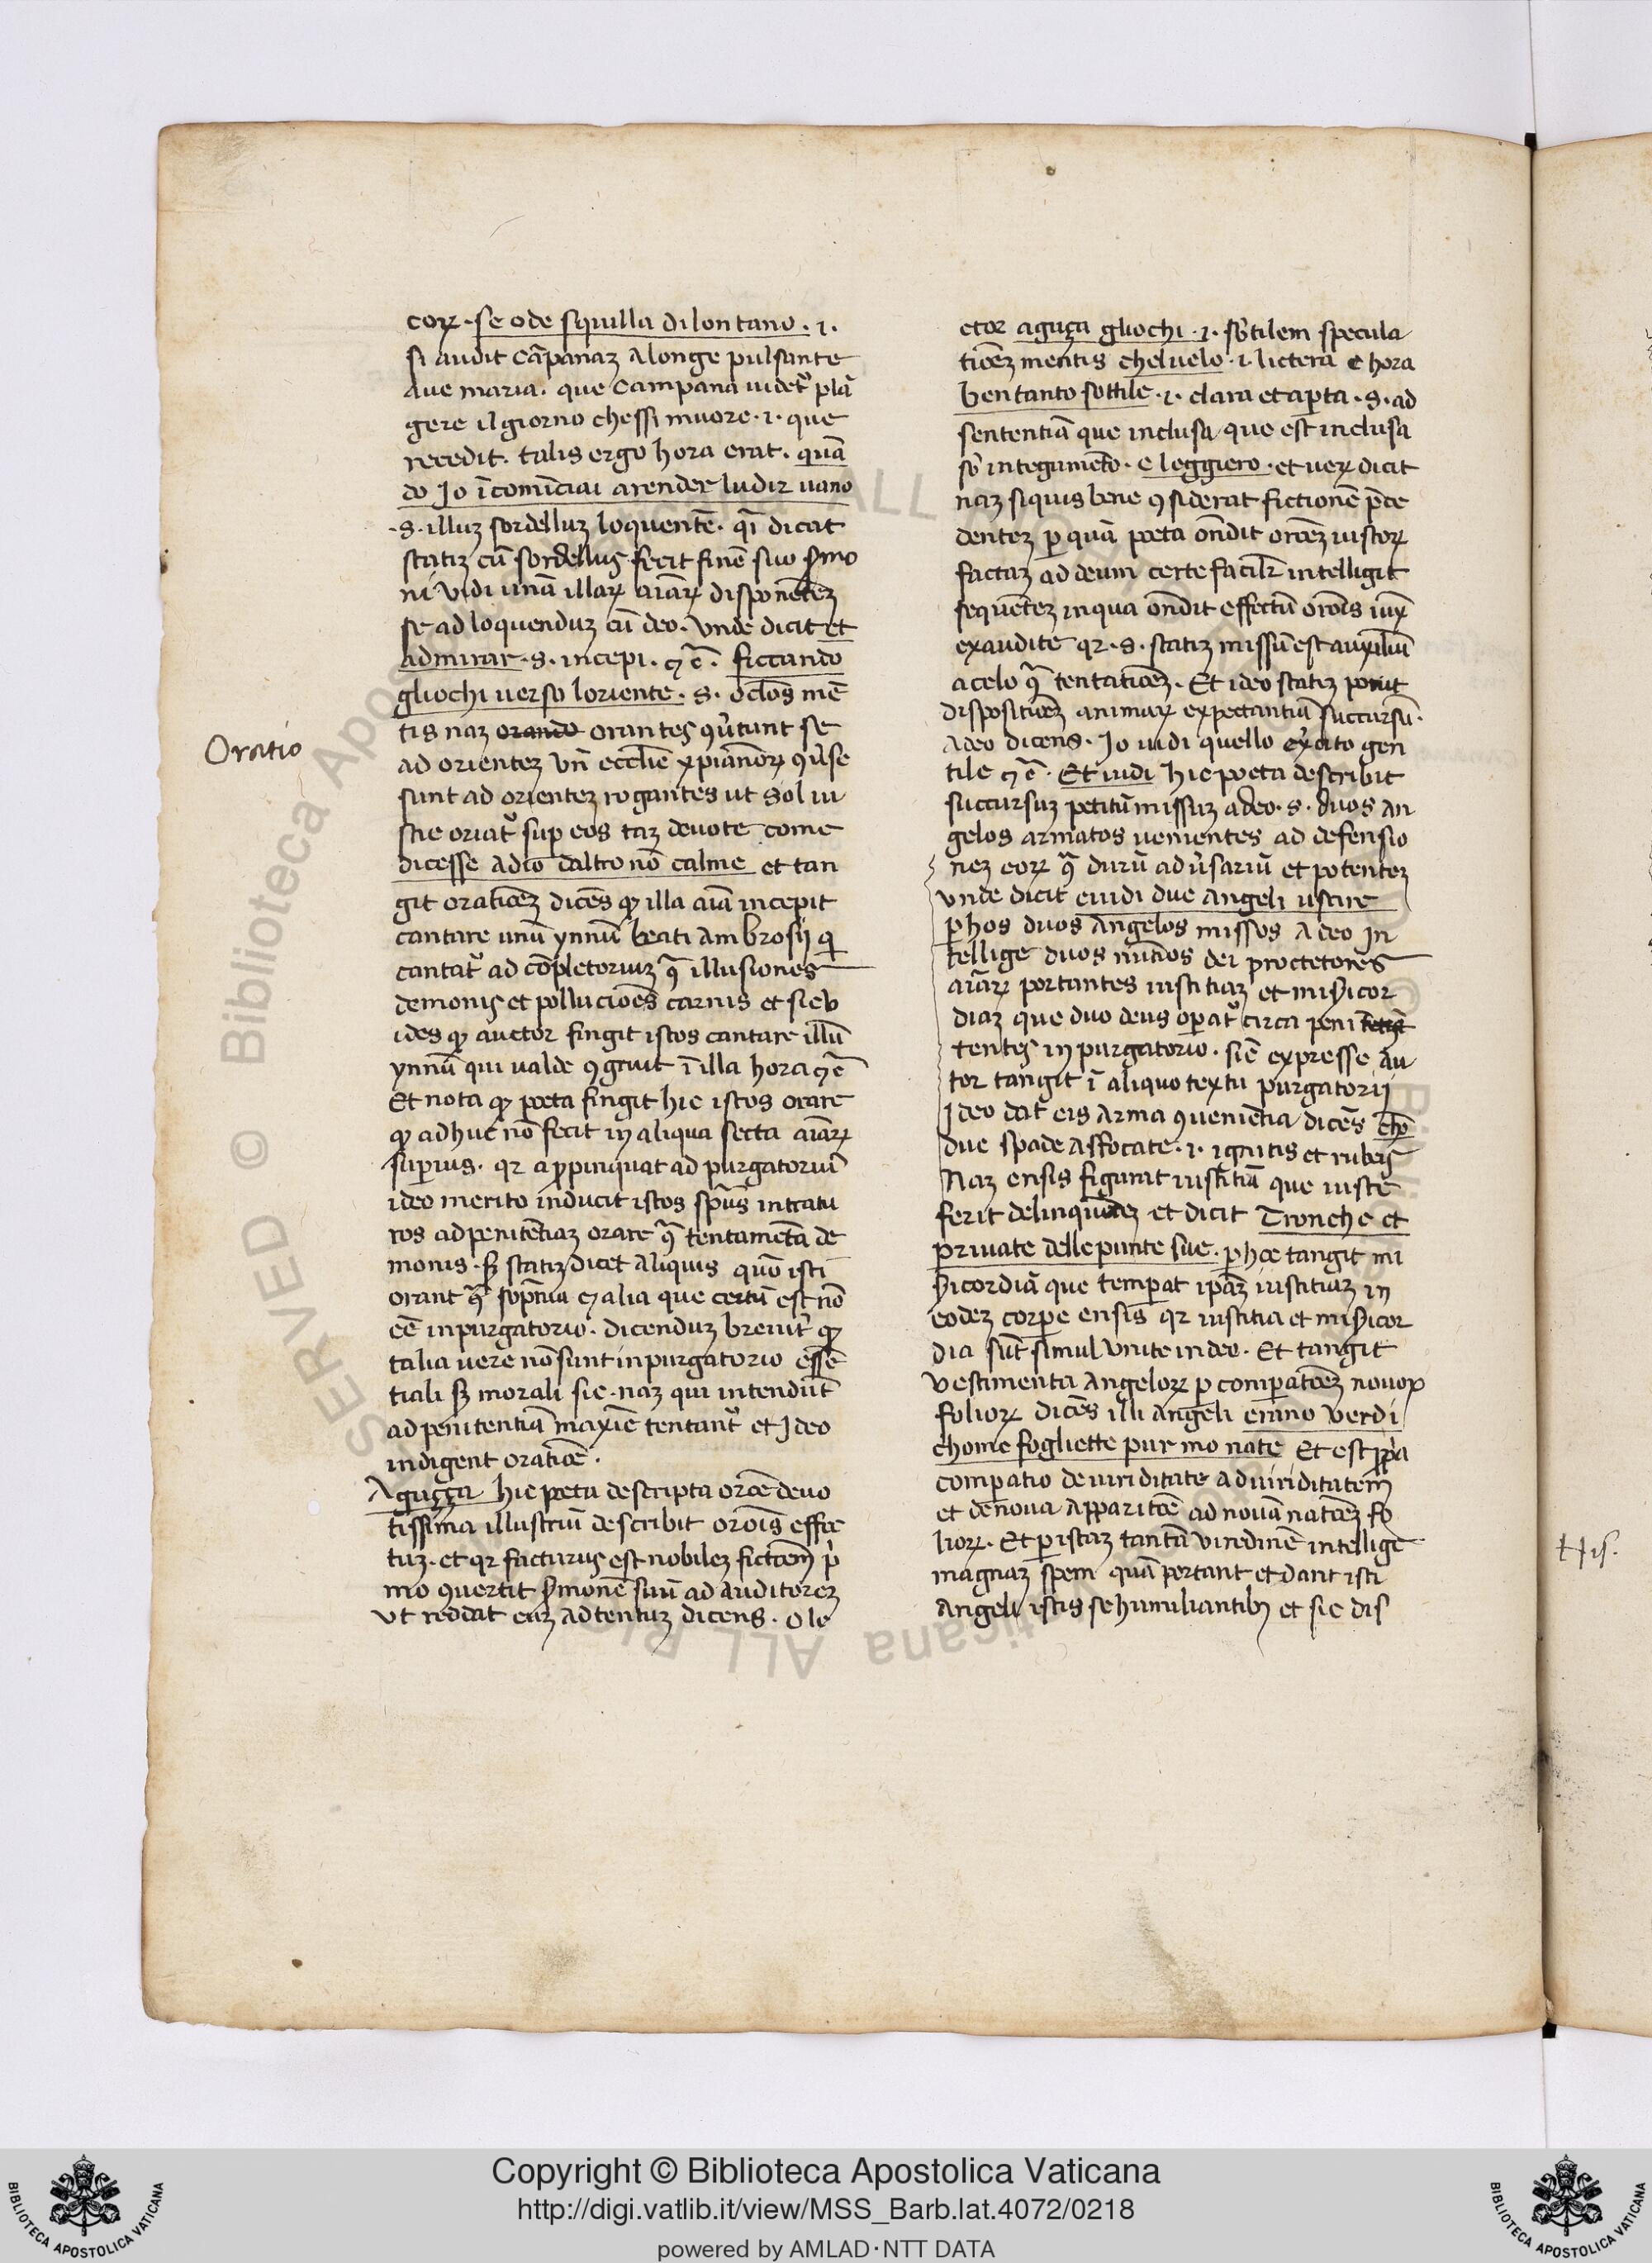 corꝝ · se ode squilla di lontano · i ·
si audit cãpanaʒ alonge pulsante
aue maria. que campana uidet᷑ plã
gere il giorno chessi muore · i · que
recedit. talis ergo hora erat. quã
do Jo ĩcomĩciai a render ludir uano
· s · illuʒ sordelluʒ loquentẽ · q̃i dicat
statiʒ cũ sordellus fecit finẽ suo ẜmo
ni uidi unã illaꝝ aĩaꝝ disponẽteʒ
se ad loquenduʒ cũ deo. vnde dicit et
admirar · s · incepi · ⁊ c̃ · ficcando
gliochi uerso loriente · s · oclõs mẽ
tis naʒ orando orantes ꝯũtunt se
ad orienteʒ vñ ecclĩe xp̃ianõꝝ ꝯũse
sunt ad orienteʒ rogantes ut sol iu
sticie oriat᷑ sup eos taʒ deuote come
dicesse adio daltro nõ calme et tan
git oratiõeʒ dicẽs ꝙ illa aĩa incepit
cantare unũ ynnũ beati ambrosij qi
cantat᷑ ad cõpletoriuʒ ꝯ̃ illusiones
demonis et polluciões carnis et sic v
ides ꝙ auctor fingit istos cantare illũ
ynnũ qui ualde ꝯgruit ĩ illa hora ⁊ c̃
Et nota ꝙ poeta fingit hic istos orare
ꝙ adhuc nõ fecit in aliqua secta aĩaꝝ
superius · qr apropinquat ad purgatoriũ
ideo merito inducit istos spũs intratu
ros ad penitẽtiaʒ orare ꝯ̃ tentamẽta de
monis · sʒ statiʒ dicet aliquis quõ isti
orant ꝯ̃ sõpnia ⁊ alia que certũ est nõ
eẽ in purgatorio · dicenduʒ breuit᷑ ꝙ
talia uere nõ sunt in purgatorio essẽ
tiali sʒ morali sic · naʒ qui intendũt
ad penitentiã maxĩe tentant᷑ et Jdeo
indigent oratiõe ·
Aguçça hic poeta descripta orõe deuo
tissima illustriũ describit orõis effec
tuʒ · et qr facturus est nobileʒ fictiõeʒ p̃i
mo ꝯuertit ẜmonẽ suũ ad auditoreʒ
vt reddat euʒ adtentuʒ dicens · O le
Oratio
ctor aguça gliochi · i · sb̃tilem specula
tiõeʒ mentis chel uelo · i · lictera e hora
ben tanto sottile · i · clara et apta · s · ad
sententiã que inclusa que est inclusa
sb̃ integumẽto · e leggiero · et ueꝝ dicit
naʒ si quis bene ꝯsiderat fictionẽ p̃ce
denteʒ p quã poeta oñdit orõeʒ iustoꝝ
factaʒ ad deum certe facilr̃ intelligit
sequẽteʒ in qua oñdit effectũ orõis iux̃
exaudite qr · s · statiʒ missũ est auxiliũ
a celo ꝯ̃ tentatiõeʒ · Et ideo statiʒ ponit
dispositiõeʒ animaꝝ expectantiũ succursũ ·
a deo dicens · Jo uidi quello ex̃cito gen
tile ⁊ c̃ · Et uidi hic poeta describit
succursuʒ petitũ missuʒ a deo · s · duos an
gelos armatos uenientes ad defensio
neʒ eoꝝ ꝯ̃ durũ adũsariũ et potenteʒ
vnde dicit e uidi due angeli uscire
p hos duos angelos missos a deo in
tellige duos nũcios dei proctetores
aĩaꝝ portantes iustitiaʒ et misẽicor
diaʒ que duo deus opat᷑ circa peni
tentes in purgatorio · sic expresse au
tor tangit ĩ aliquo textu purgatorij
Jdeo dat eis arma ꝯueniẽtia dicẽs chõ
due spade affocate · i · ignitis et rubeis
Naʒ ensis figurat iustitiã que iuste
ferit delinquẽteʒ et dicit Tronche et
priuate delle punte sue · p hoc tangit mi
ẜicordiã que tempat ip̃aʒ iustitiaʒ in
eodeʒ corpe ensis qr iustitia et misẽicor
dia sũt simul vnite in deo · Et tangit
vestimenta angeloꝝ p compatiõeʒ nouoꝝ
folioꝝ dicẽs illi angeli erano verdi
chome fogliette pur mo nate Et est pp̃a
compatio de uiriditate ad uiriditatem
et de noua apparitiõe ad nouã natiõeʒ fo
lioꝝ · Et p istaʒ tantã viredinẽ intellige
magnaʒ spem quã portant et dant isti
angeli istis se humiliantibʒ et sic dis
His.
Copyright © Biblioteca Apostolica Vaticana
http://digi.vatlib.it/view/MSS_Barb.lat.4072/0218
powered by AMLAD · NTT DATA
BIBLIOTECA APOSTOLICA VATICANA
BIBLIOTECA APOSTOLICA VATICANA